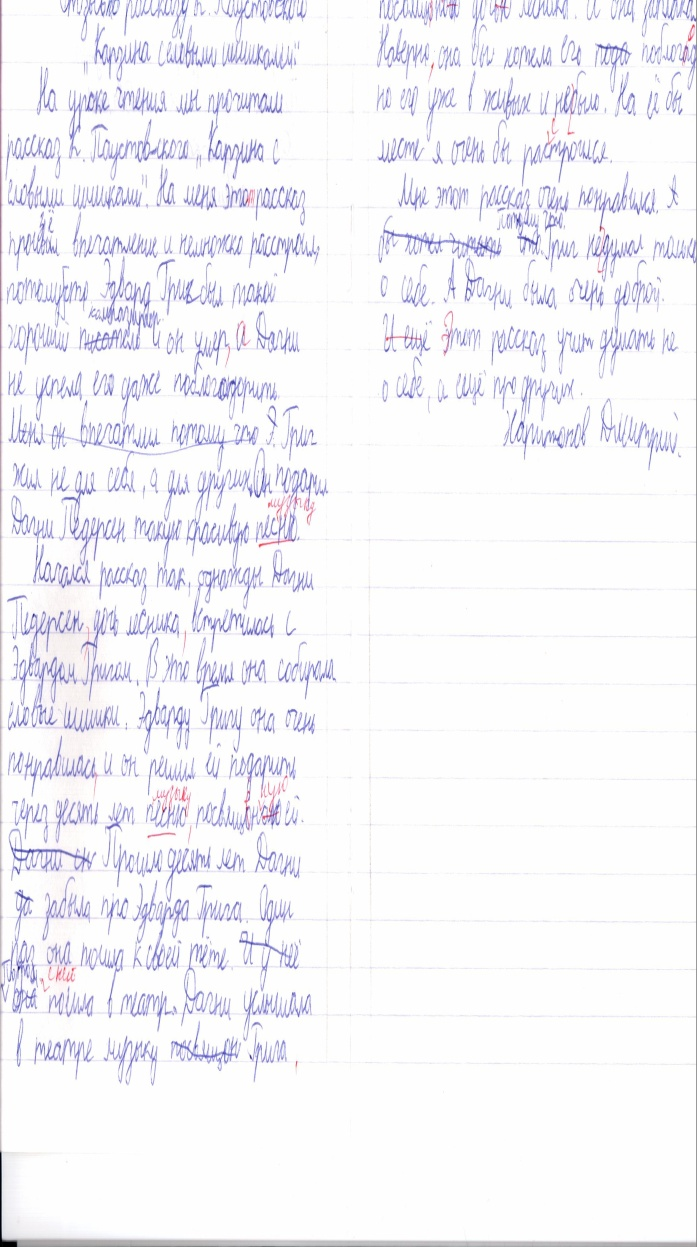 Отзыв по рассказу К. Паустовского
„Карзина с еловыми шишками."
На уроке чтения мы прочитали
рассказ К. Паустовского „Карзина с
еловыми шишками". На меня этот рассказ
произвёл впечатление и немножко расстроил,
потомучто Эдвард Григ был такой
композитор
хороший писатель и он умер, а Дагни
не успела, его даже поблагодорить.
Меня он впечатлил потому что Э. Григ
жил не для себя, а для других. Он подарил
музыку
Дагни Педерсен такую красивую песню.
Начался рассказ так, однажды Дагни
Педерсен, дочь лесника, встретилась с
Эдвардом Григом. В это время она собирала
еловые шишки. Эдварду Григу она очень
понравилась, и он решил ей подарить
музыку
через десять лет песню, посвящ ей.
Дагни он Прошло десять лет Дагни
да забыла про Эдварда Грига. Один
раз она пошла к своей тёте. И у неё
с ней
она пошла в театр. Дагни услышала
в театре музыку посвящон Грига,
лесника. И она заплакала
Наверно, она бы хотела его поблагод
но его уже в живых и небыло. На её бы
месте я очень бы расстроился.
Мне этот рассказ очень понравился. А
потому что
бы хотел Григ недумал только
о себе. А Дагни была очень доброй.
И ещё Этот рассказ учит думать не
о себе, а ещё про других.
Харитонов Дмитрий.